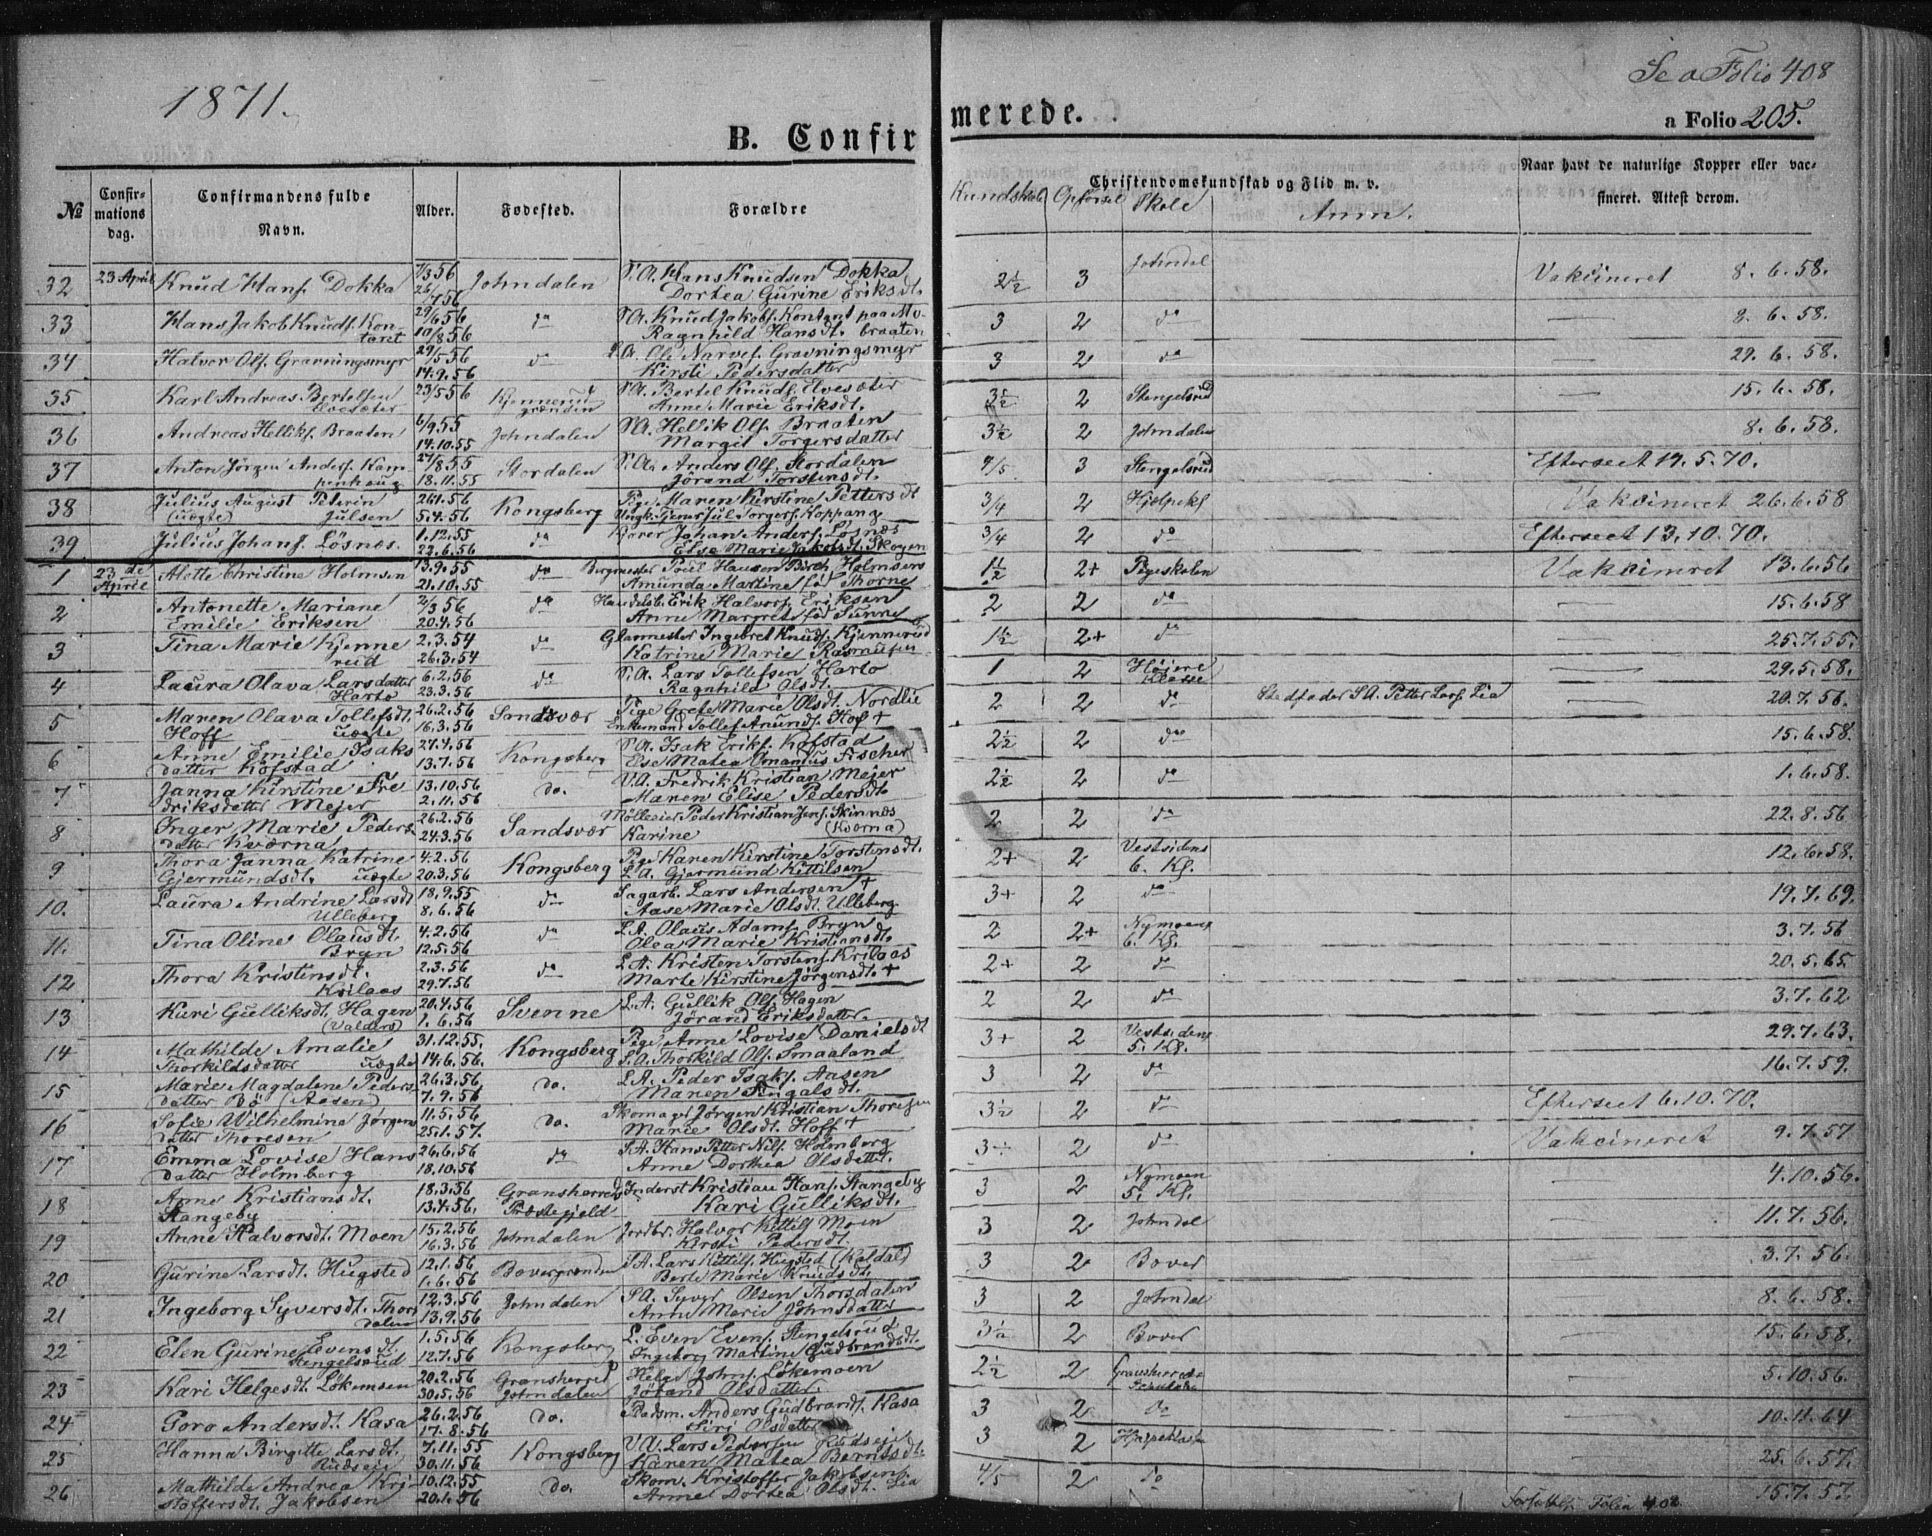 1871.
Se a Folio 408
B. Confirmerede.
a Folio 205.
№
Confirmations dag.
Confirmandens fulde Navn.
Alder.
Fødested.
Forældre
Christendomskundskab og Flid m. v.
Kundskab Opførsel Skole Anm.
Naar havt de naturlige Kopper eller vaccineret. Attest derom.
32 23 April Knud Hans. Dokka 7/3 56 Johndalen S.A. Hans Knudsen Dokka 2½ 3 Johndal Vakcineret 8.6.58.
26/7 56 Dortea Gurine Eriksdt.
33 Hans Jakob Knuds. Kon- 29/6 56 do S.A. Knud Jakobs. Kontant paa Mo- 3 2 do — 8.6.58.
tant 10/8 56 Ragnhild Hansdt. braaten
34 Halvor Ols. Gravningsmyr 29/5 56 do S.A. Ole Narves. Gravningsmyr 3 2 do — 29.6.58.
14.9.56 Kirsti Pedersdatter
35 Karl Andreas Bertelsen 23/5 56 Kjennerud S.A. Bertel Knuds. Elvesæter 3½ 2 Stengelsrud — 15.6.58.
Elvesæter grændsen Anne Marie Eriksdt.
36 Andreas Helliks. Braaten 6/9 55 Johndalen S.A. Hellik Ols. Braaten 3½ 2 Johndalen — 8.6.58.
14.10.55 Margit Torgersdatter
37 Anton Jörgen Anders. Kam- 27/8 55 Stordalen S.A. Anders Ols. Stordalen 4/5 3 Stengelsrud Efterseet 19.5.70.
penhaug 18.11.55 Jörand Torstensdt.
38 Julius August Peterin 26.1.56 Kongsberg Pige Maren Kirstine Pettersdt 3/4 2 Hjelpekl Vakcineret 26.6.58
(uægte) Julsen 5.4.56 Ungk. Tjener Jul Torgers. Koppang
39 Julius Johans. Lösnæs. 1.12.55 do Borer Johan Anders. Losnæs 3/4 2 do Efterseet 13.10.70.
22.6.56 Else Marie Jakobsdt. Skogen
1 23de April Alette Christine Holmsen 13.9.55 do Bergmester Poul Hansen Birch Holmsens 1½ 2+ Pigeskolen Vakcineret 13.6.56
21.10.55 Amunda Martine föd Thorne
2 Antonette Mariane 2/3 56 do Handelsb. Erik Halvors. Eriksen 2 2 do — 15.6.58
Emilie Eriksen 20.4.56 Anne Margrete föd Sunne
3 Tina Marie Kjenne 2.3.54 do Glasmester Ingebret Knuds. Kjennerud 1½ 2+ do — 25.7.55.
rud 26.3.54 Katrine Marie Rasmussen
4 Laura Olava Larsdatter 6.2.56 do S.A. Lars Tollefsen Harto 1 2 Höiere Klasse — 29.5.58.
Harto 23.3.56 Ragnhild Olsdt.
5 Maren Olava Tollefsdt. 26.2.56 Sandsvær Pige Grete Marie Olsdt. Nordlie 2 2 do Stedfader S.A. Petter Lars. Lia — 20.7.56.
Hoff uægte 16.3.56 Enkemand Tollef Anunds. Hof +
6 Anne Emilie Isaks 27.4.56 Kongsberg S.A. Isak Eriks. Kofstad 2½ 2 do — 15.6.58.
datter Kofstad 13.7.56 Else Matea Fischer
7 Janna Kirstine Fre 13.10.56 do. V.A. Fredrik Kristian Mejer 2½ 2 do — 1.6.58.
driksdatter Mejer 2.11.56 Maren Elise Pedersdt
8 Inger Marie Peders 26.2.56 Sandsvær Möllesier Peder Kristian Jens. Skinnes 2 2 do — 22.8.56
datter Kværna 24.3.56 Karine (Kværna)
9 Thora Janna Katrine 4.2.56 Kongsberg Pige Karen Kirstine Torstensdt. 2+ 2 Vestsidens — 12.6.58.
Gjermundsdt. uægte 20.3.56 S.A. Gjermund Kittilsen 6. Kl.
10. Laura Andrine Larsdt 18.9.55 do Sagarb. Lars Andersen + 3+ 2 do — 19.7.69.
Ulleberg 8.6.56 Aase Marie Olsdt. Ulleberg
11. Tina Oline Olausdt. 4.2.56 do S.A. Olaus Adams. Bryn 2 2+ Nymoens — 3.7.56
Bryn 12.5.56 Olea Marie Kristiansdt. 6. Kl.
12 Thora Kristensdt. 2.3.56 do S.A. Kristen Torstens. Krilaas 2+ 2 do — 20.5.65.
Krilaas 29.7.56 Marte Kirstine Jörgensdt. +
13 Kari Gulliksdt. Hagen 20.4.56 Svenne S.A. Gullik Ols. Hagen 2 2 do — 3.7.62
(Valders) 1.6.56 Jörand Eriksdatter
14 Mathilde Amalie 31.12.55. Kongsberg Pige Anne Lovise Danielsdt 3+ 2 Vestsidens — 29.7.63.
Thorkildsdatter Uægte 14.6.56. S.A. Thorkild Ols. Smaaland 5. Kl.
15 Marie Magdalene Peders- 26.3.56 do. S.A. Peder Isaks. Aasen 3 2 do — 16.7.59.
datter Bö (Aasen) 7.9.56 Maren Fingalsdt.
16 Sofie Wilhelmine Jörgen 11.5.56 do. Skomager Jörgen Kristian Thoresen 3½ 2 do Efterseet 6.10.70.
datter Thoresen 25.1.57. Marie Olsdt. Hoff +
17 Emma Lovise Hans 26.6.56 do S.A. Hans Petter Nils. Holmberg 3÷ 2 do Vakcineret 9.7.57
datter Holmberg 18.10.56 Anne Dorthea Olsdatter.
18 Anne Kristiansdt. 18.3.56 Gransherred Inderst Kristian Hans. Stangeby 3 2 Nymoen — 4.10.56.
Stangeby 13.4.56. Præstegjeld Kari Gulliksdt. 5. Kl.
19 Anne Halvorsdt. Moen 15.2.56 Johndalen Jordbr. Halvor Kittils. Moen 3 2 Johndal — 11.7.56.
16.3.56 Kirsti Pedersdt.
20 Gurine Larsdt. Hugsted 12.1.56 Bovergrænden S.A. Lars Kittils. Hugsted (Kaldal) 3 2 Bover — 3.7.56.
1.6.56 Berte Marie Knudsdt.
21 Ingeborg Syversdt. Thors 12.3.56 Johndalen S.A. Syver Olsen Thorsdalen 3 2 Johndal — 8.6.58.
dalen 13.9.56 Anne Marie Johnsdatter
22 Elen Gurine Evensdt. 1.5.56 Kongsberg L. Even Evens. Stengelsrud 3½ 2 Bover — 15.6.58.
Stengelsrud 12.7.56 Ingeborg Martine Gudbrandsdt.
23 Kari Helgesdt. Lökemoen 20.2.56 Gransherred Helge Johns. Lökemoen 2½ 2 Gransherreds — 5.10.56.
30.5.56 Johndalen Jörand Olsdatter
24 Goro Andersdt. Kasa 26.2.56 do. Pladsm. Anders Gudbrandt. Kasa 3 2 do — 10.11.64
17.8.56 Siri Olsdatter
25 Hanna Birgitte Larsdt. 7.11.55 Kongsberg V.A. Lars Pedersen Rudseje 3 2 Hjelpeklasse — 25.6.57.
Rudseie 30.11.56 Karen Matea Berntsdt.
26 Mathilde Andrea Kri- 10.12.55 do. Skom. Kristoffer Jakobsen 4/5 2 do 15.7.57.
stoffersdt. Jakobsen 20.1.56 Anne Dortea Olsdt. Lia
Forsættes Folio 402